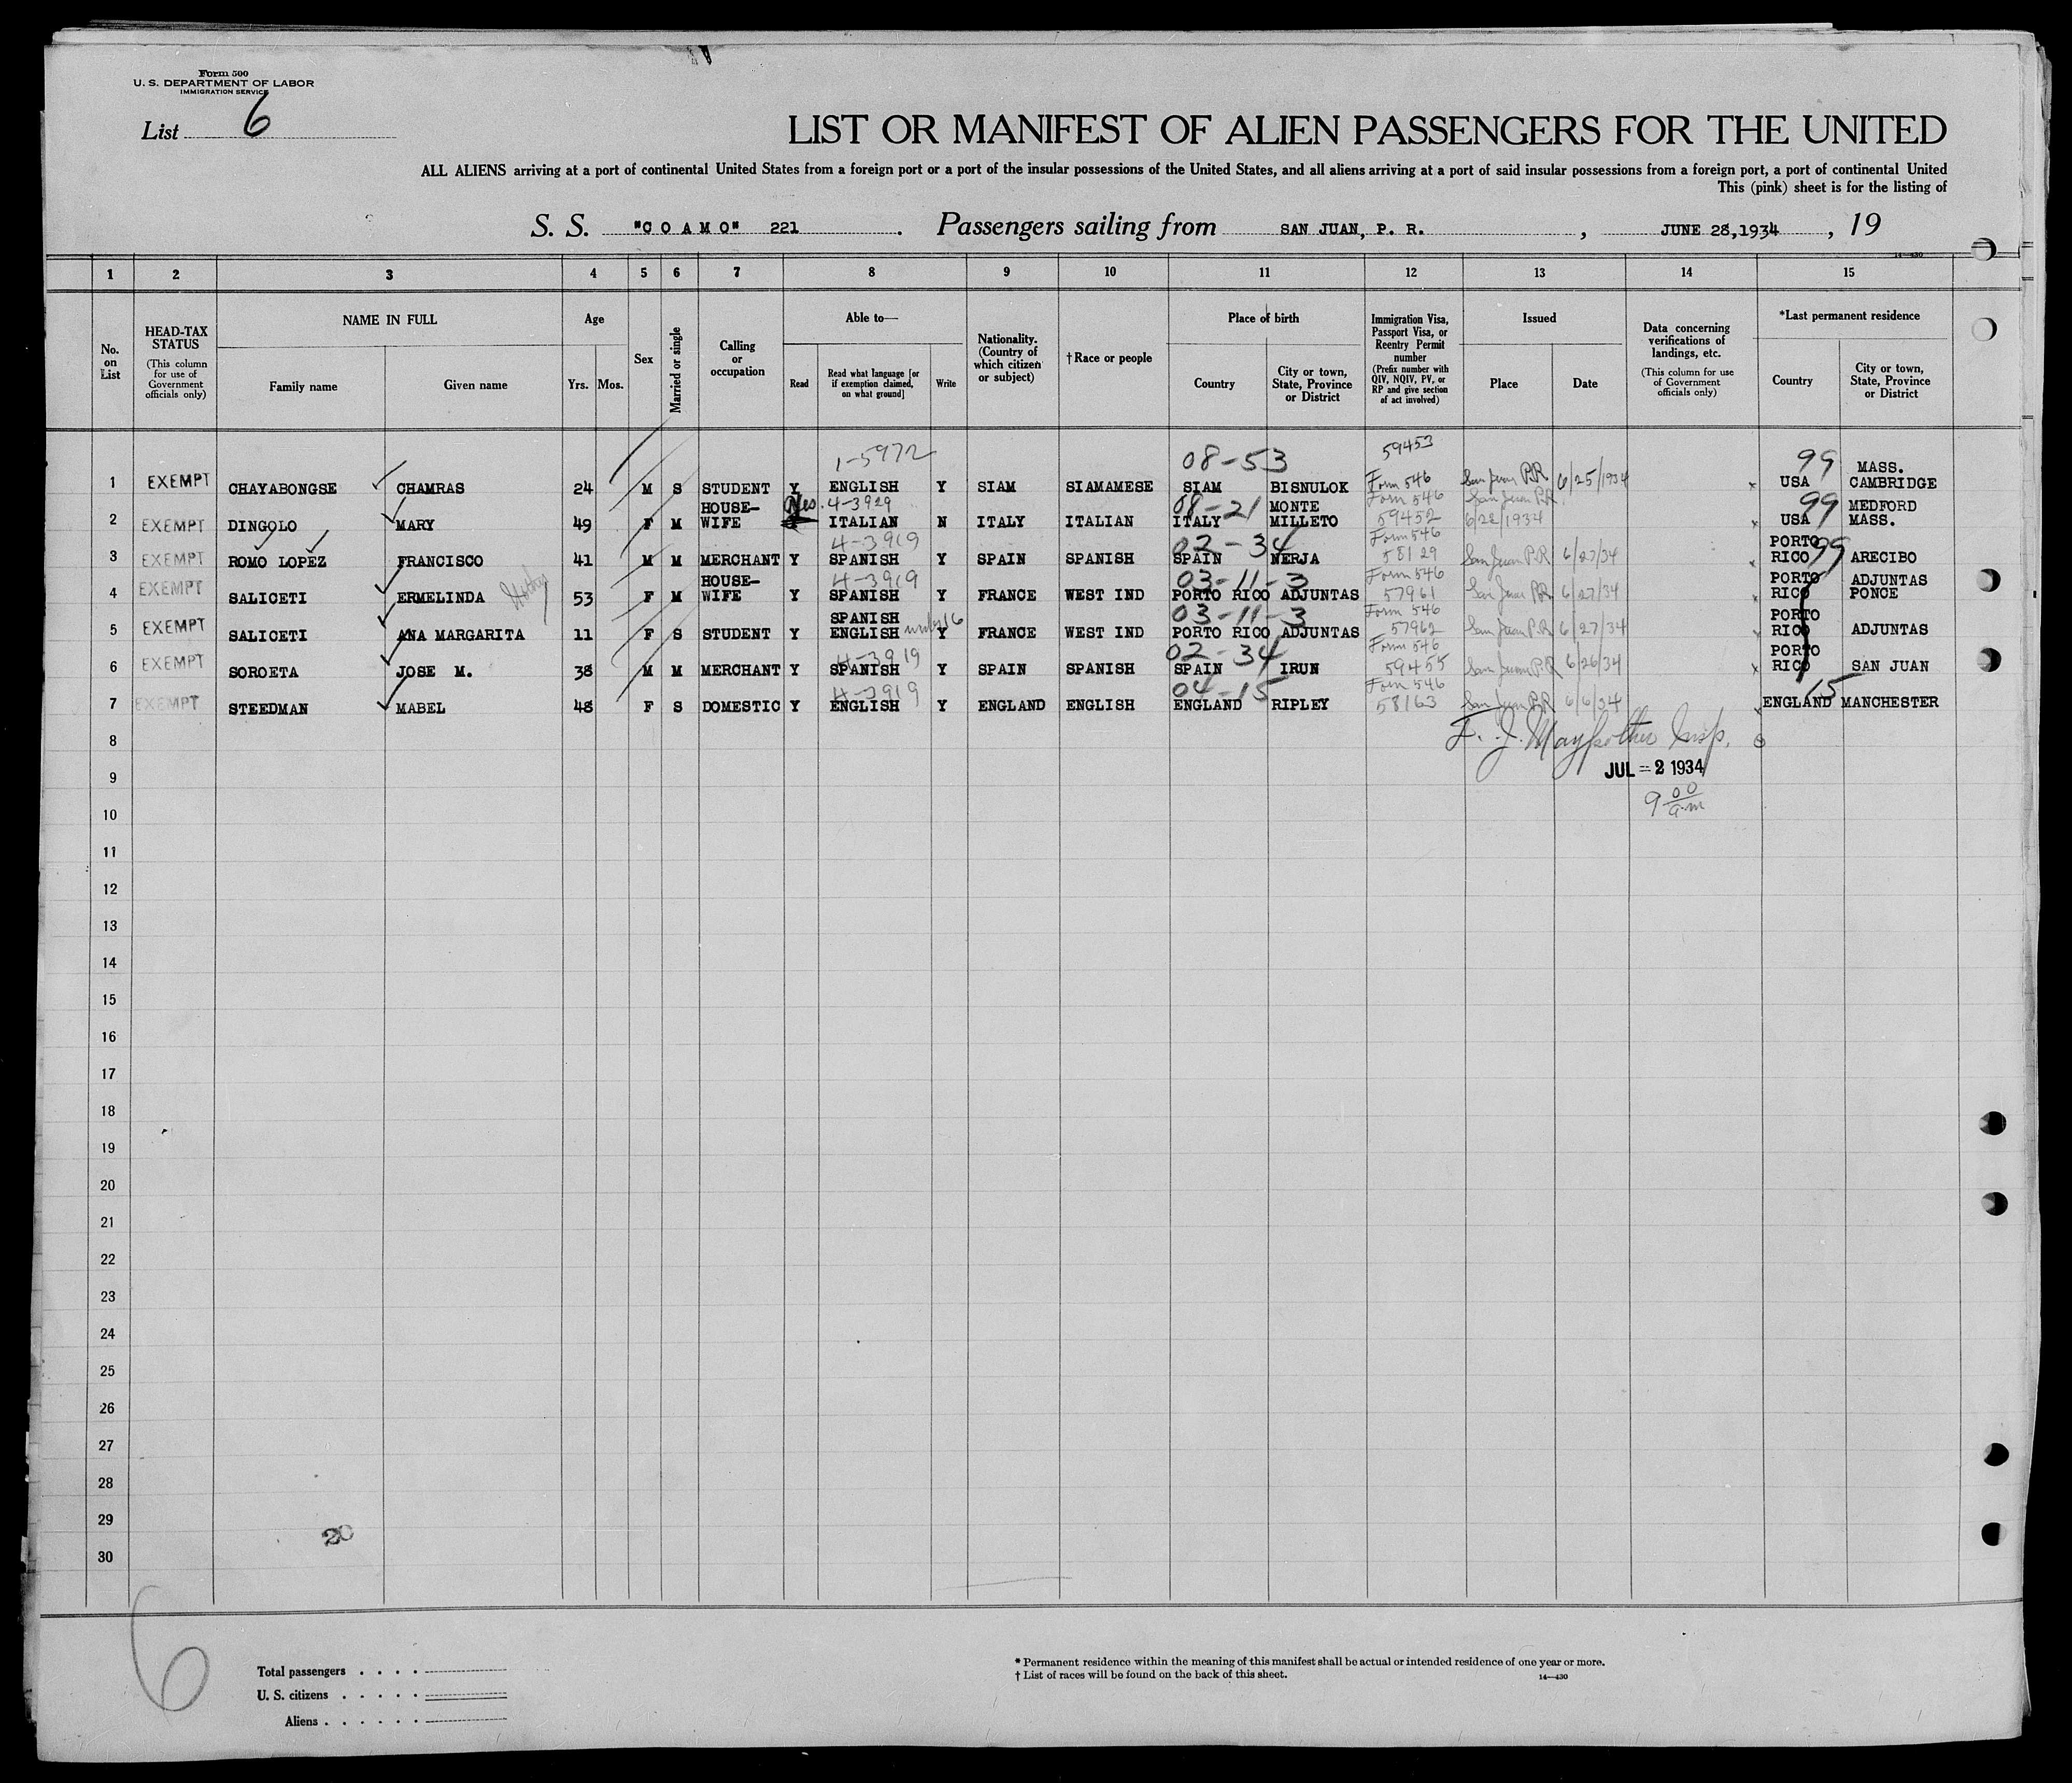 Form 500
U. S. DEPARTMENT OF LABOR
IMMIGRATION SERVICE
List 6
LIST OR MANIFEST OF ALIEN PASSENGERS FOR THE UNITED
ALL ALIENS arriving at a port of continental United States from a foreign port or a port of the insular possessions of the United States, and all aliens arriving at a port of said insular possessions from a foreign port, a port of continental United
This (pink) sheet is for the listing of
S. S. "COAMO" 221 . Passengers sailing from SAN JUAN, P. R. , JUNE 28,1934 , 19
14—430
1 2 3 4 5 6 7 8 9 10 11 12 13 14 15
No. on List
HEAD-TAX STATUS (This column for use of Government officials only)
NAME IN FULL
Family name Given name
Age
Yrs. Mos.
Sex
Married or single
Calling or occupation
Able to—
Read Read what language [or if exemption claimed, on what ground] Write
Nationality. (Country of which citizen or subject)
†Race or people
Place of birth
Country City or town, State, Province or District
Immigration Visa, Passport Visa, or Reentry Permit number (Prefix number with QIV, NQIV, PV, or RP and give section of act involved)
Issued
Place Date
Data concerning verifications of landings, etc. (This column for use of Government officials only)
*Last permanent residence
Country City or town, State, Province or District
1-5972 08-53 59453 99 MASS.
1 EXEMPT CHAYABONGSE CHAMRAS 24 M S STUDENT Y ENGLISH Y SIAM SIAMAMESE SIAM BISNULOK Form 546 San Juan P.R. 6/25/1934 USA CAMBRIDGE
HOUSE- Yes. 4-3929 08-21 MONTE Form 546 San Juan P.R. 99 MEDFORD
2 EXEMPT DINGOLO MARY 49 F M WIFE ITALIAN N ITALY ITALIAN ITALY MILLETO 59452 USA MASS.
4-3919 02-34 Form 546 PORTO 99
3 EXEMPT ROMO LOPEZ FRANCISCO 41 M M MERCHANT Y SPANISH Y SPAIN SPANISH SPAIN NERJA 58129 San Juan P.R. 6/27/34 RICO ARECIBO
HOUSE- 4-3919 03-11-3 Form 546 PORTO ADJUNTAS
4 EXEMPT SALICETI ERMELINDA 53 F M WIFE Y SPANISH Y FRANCE WEST IND PORTO RICO ADJUNTAS 57961 San Juan P.R. 6/27/34 RICO PONCE
SPANISH 03-11-3 Form 546 PORTO
5 EXEMPT SALICETI ANA MARGARITA 11 F S STUDENT Y ENGLISH under 16 Y FRANCE WEST IND PORTO RICO ADJUNTAS 57962 San Juan P.R. 6/27/34 RICO ADJUNTAS
4-3919 02-34 Form 546 PORTO
6 EXEMPT SOROETA JOSE M. 38 M M MERCHANT Y SPANISH Y SPAIN SPANISH SPAIN IRUN 59455 San Juan P.R. 6/26/34 RICO SAN JUAN
4-3919 04-15 Form 546 15
7 EXEMPT STEEDMAN MABEL 48 F S DOMESTIC Y ENGLISH Y ENGLAND ENGLISH ENGLAND RIPLEY 58163 San Juan P.R. 6/6/34 ENGLAND MANCHESTER
8 F. J. Insp.
9 JUL - 2 1934
10 9 00 am
11
12
13
14
15
16
17
18
19
20
21
22
23
24
25
26
27
28
29 20
30
6
Total passengers
U. S. citizens
Aliens
* Permanent residence within the meaning of this manifest shall be actual or intended residence of one year or more.
† List of races will be found on the back of this sheet. 14—430